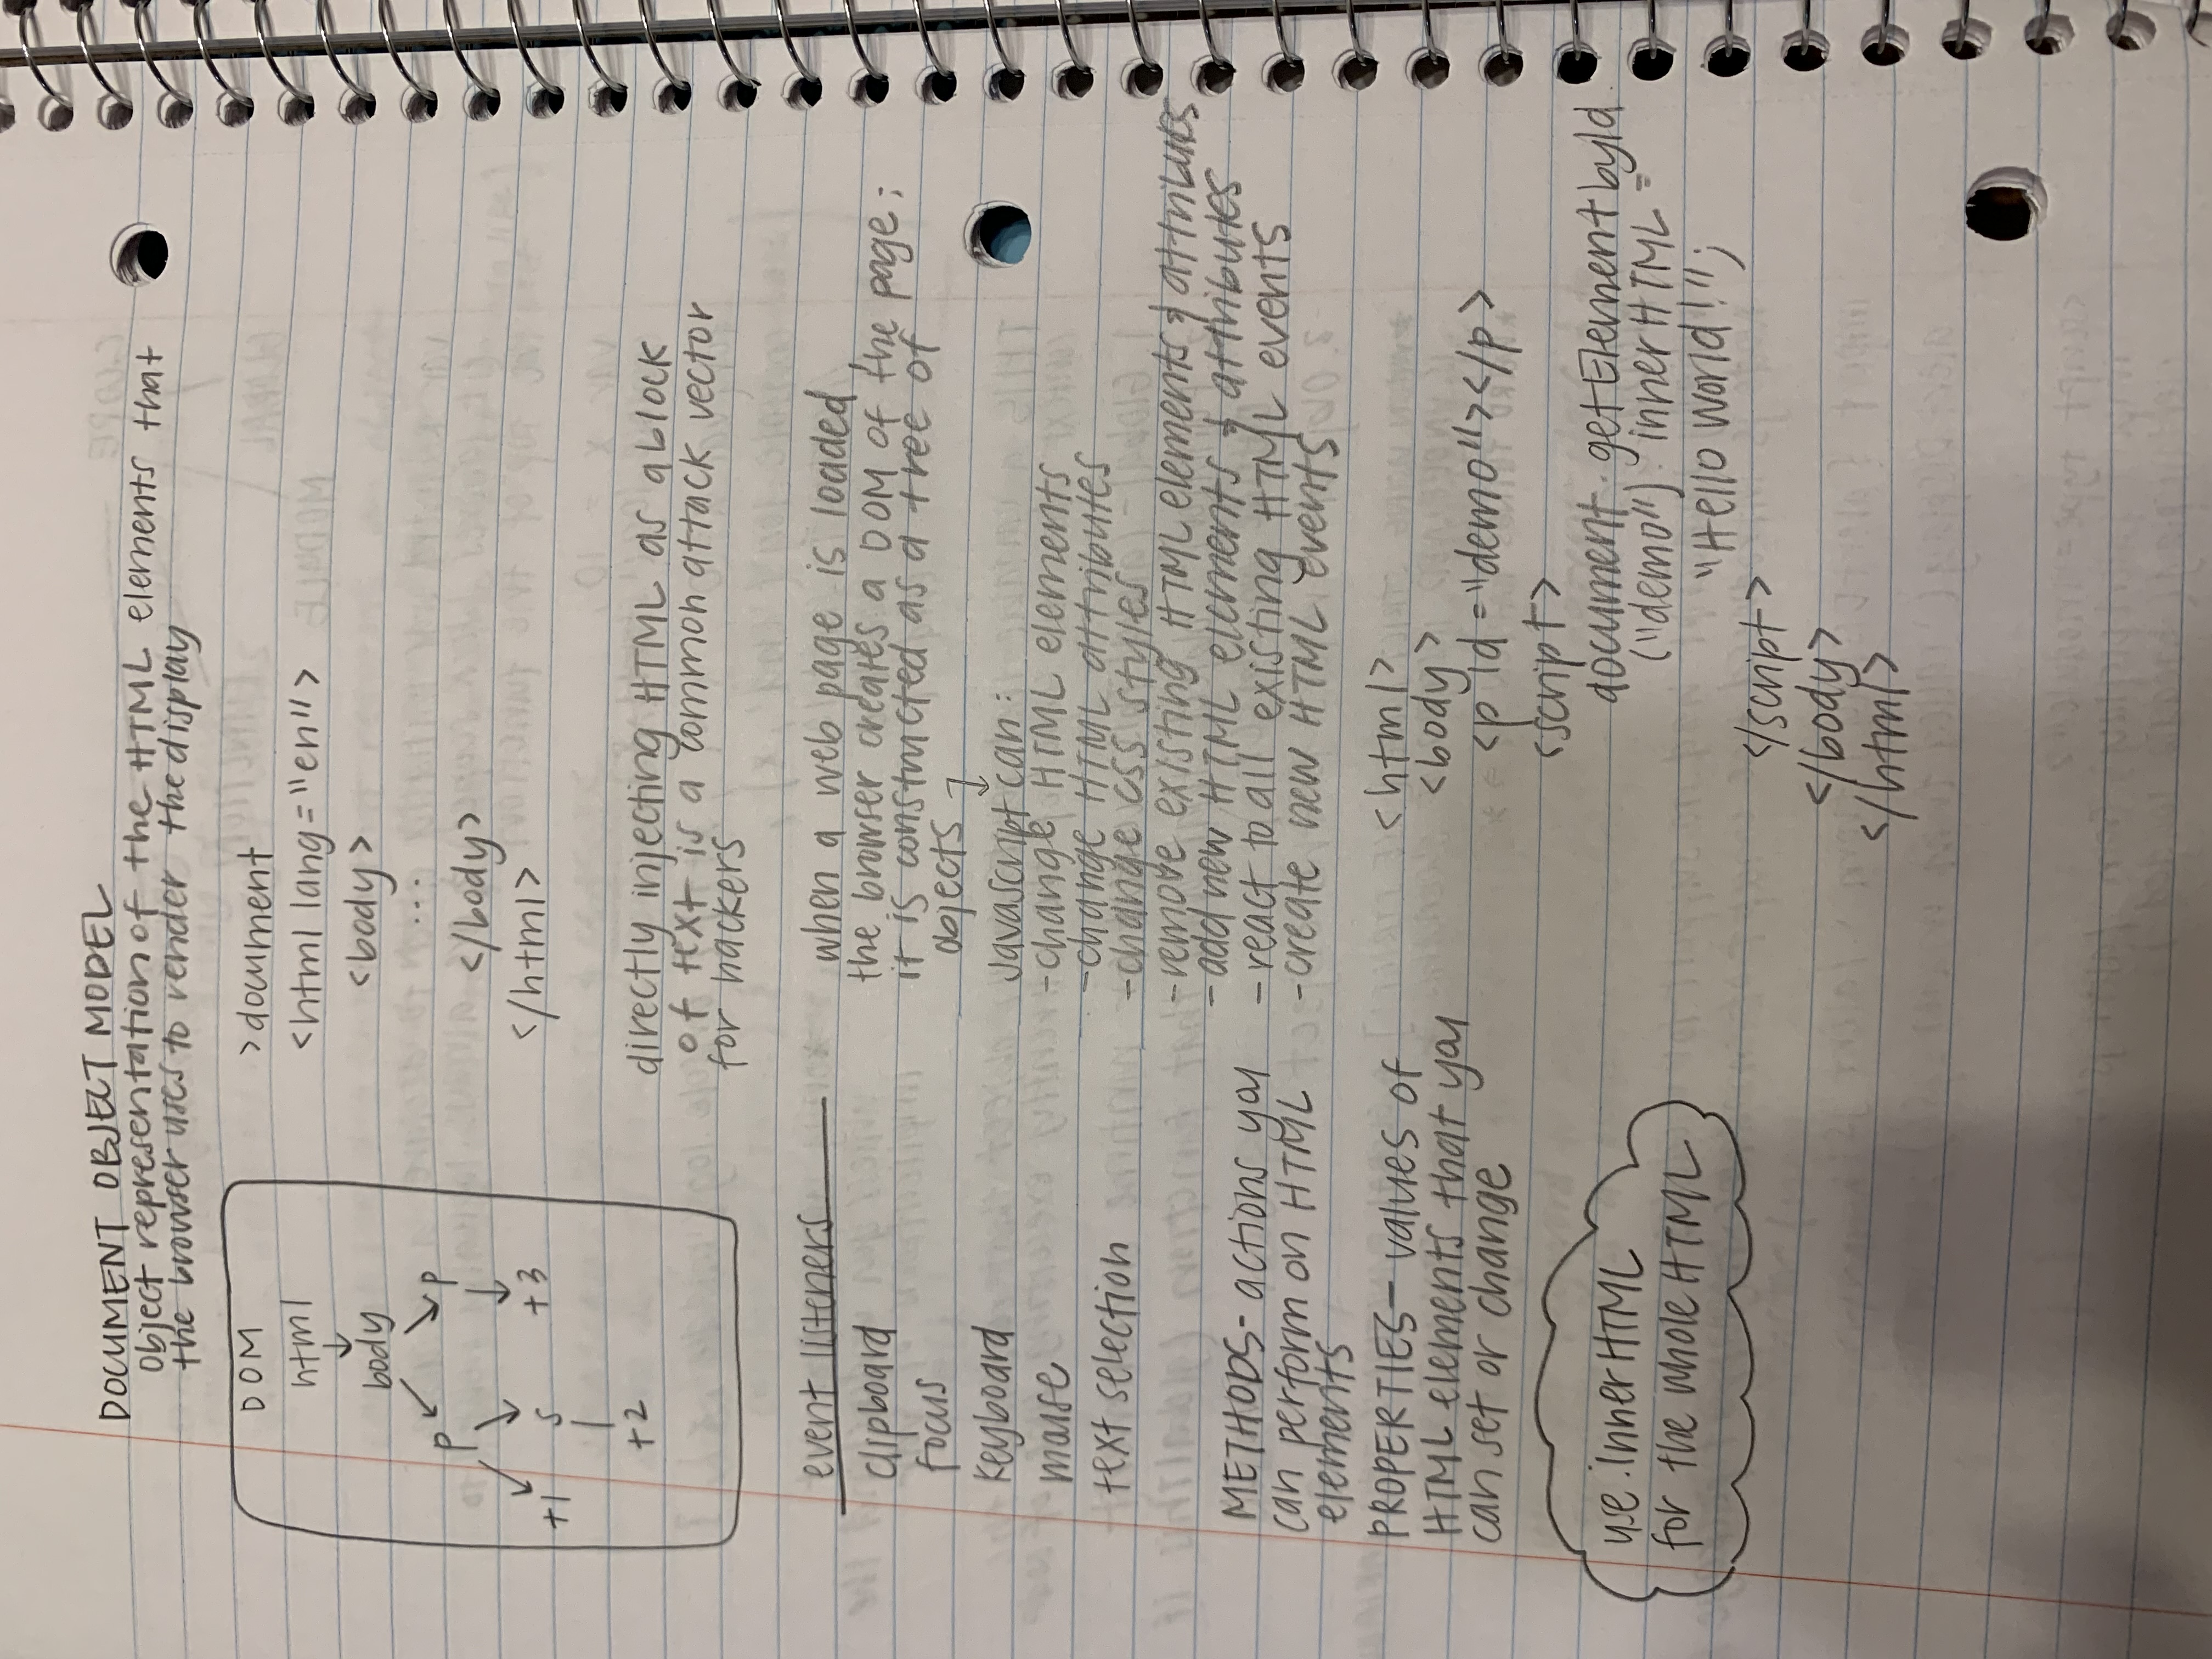 DOCUMENT OBJECT MODEL
object representation of the HTML elements that
the browser uses to render the display
DOM
html
body
p p
+1 s +3
+2
>document
<html lang="en">
<body>
...
</body>
</html>
directly injecting HTML as a block
of text is a common attack vector
for hackers
event listeners
clipboard
focus
keyboard
mouse
text selection
when a web page is loaded,
the browser creates a DOM of the page;
it is constructed as a tree of
objects
Javascript can:
-change HTML elements
-change HTML attributes
-change CSS styles
-remove existing HTML elements & attributes
-add new HTML elements & attributes
-react to all existing HTML events
-create new HTML events
METHODS- actions you
can perform on HTML
elements
PROPERTIES- values of
HTML elements that you
can set or change
use .innerHTML
for the whole HTML
<html>
<body>
<p id="demo"></p>
<script>
document.getElementbyId
("demo").innerHTML =
"Hello World!";
</script>
</body>
</html>